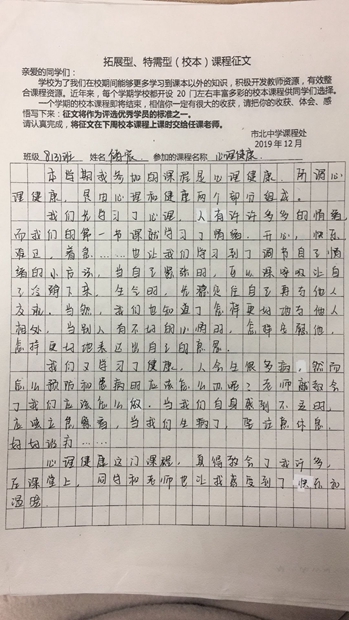 拓展型、特需型（校本）课程征文
亲爱的同学们：
学校为了我们在校期间能够更多学习到课本以外的知识，积极开发教师资源，有效整
合课程资源。近年来，每个学期学校都开设 20 门左右丰富多彩的校本课程供同学们选择。
一个学期的校本课程即将结束，相信你一定有很大的收获，请把你的收获、体会、感
悟写下来；征文将作为评选优秀学员的标准之一。
请认真完成，将征文在下周校本课程上课时交给任课老师。
市北中学课程处
2019 年 12 月
班级 8(3)班 姓名 参加的课程名称 心理健康
本学期我参加的课程是心理健康。所谓心
理健康，是由心理和健康两个部分组成。
我们先学习了心理，人有许许多多的情绪，
而我们的第一节课就学习了情绪。开心，快乐，
难过，着急……也让我们学习到了调节自己情
绪的小方法，当自己紧张时，可以深呼吸让自
己冷静下来，生气时，
友好。当然，我们也知道了怎样更好地与他人
相处，当别人有不好的心情时，怎样安慰他，
怎样更好地表达出自己的意愿。
我们又学习了健康，人会生很多病，然而
怎么预防和患病时应该怎么办呢？老师都教会
了我们应该怎么做。当我们自身感到不适时，
应该立即 当我们生病了，要注意休息，
好好治疗……
心理健康这门课程，真得教会了我许多，
在课堂上，同学和老师也让我感受到了快乐和
温暖。